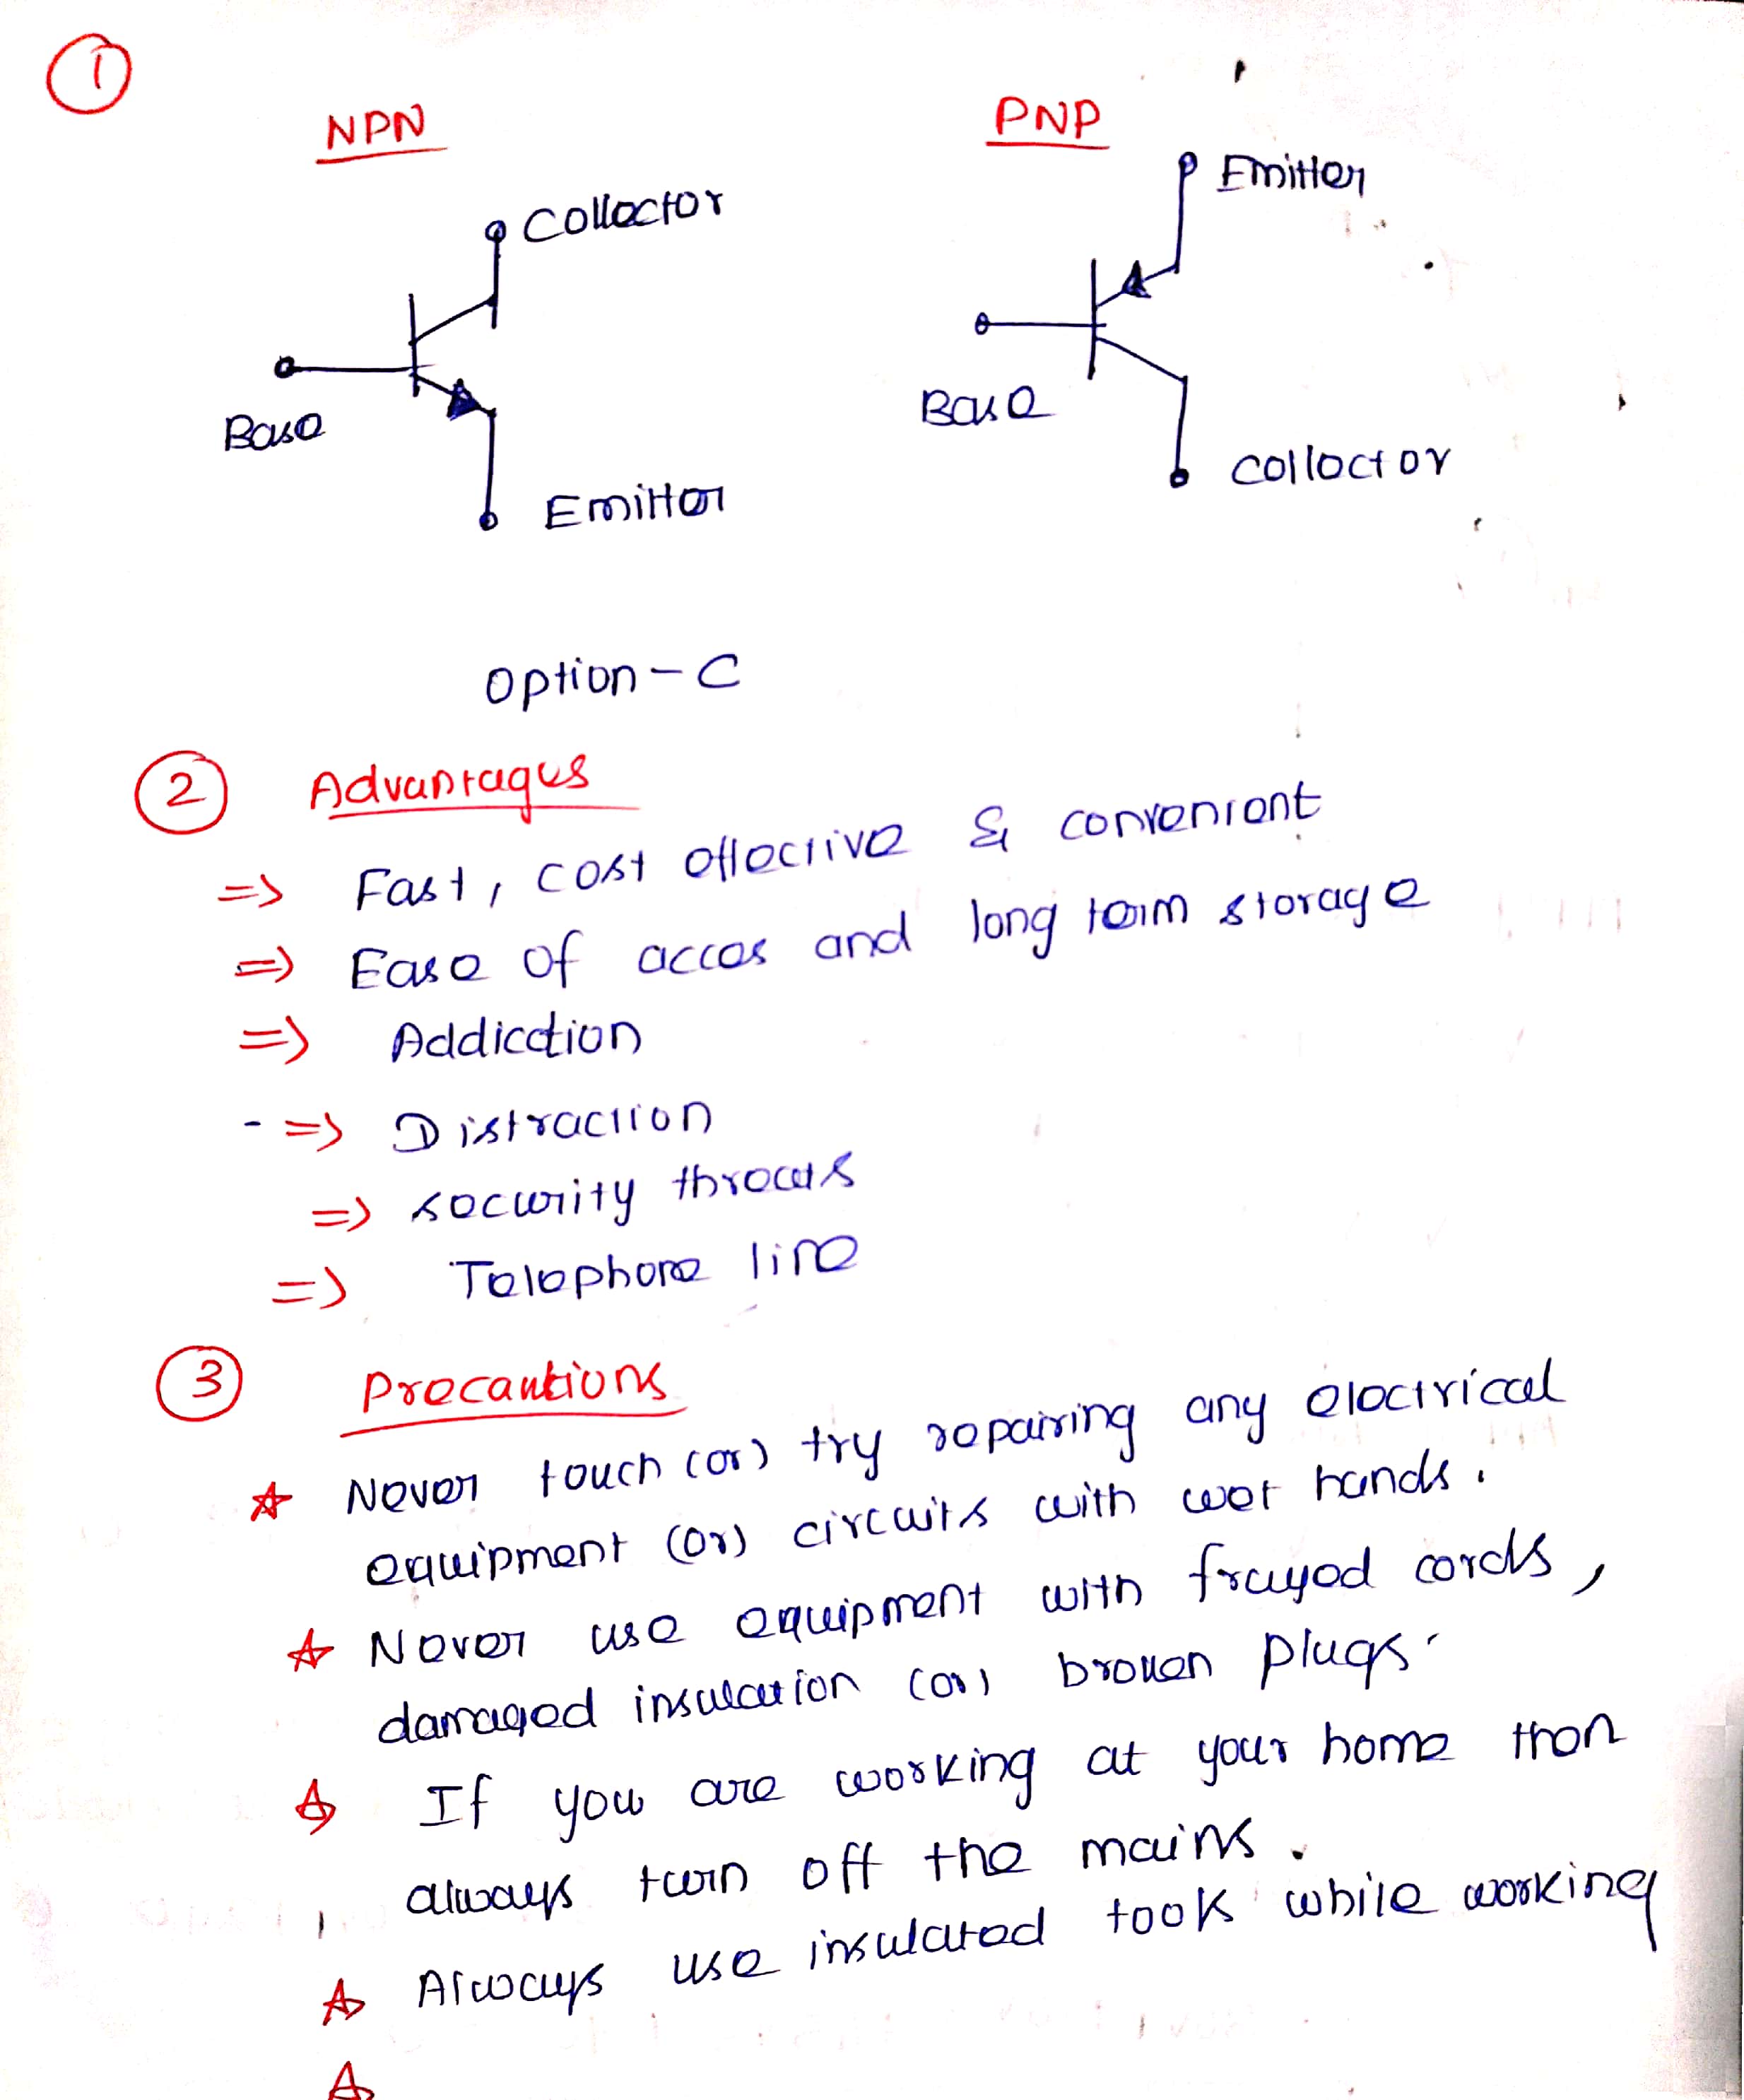 1
NPN
PNP
Collector
Emitter
Base
Base
Emitter
Collector
Option - C
2 Advantages
=> Fast, cost effective & convenient
=> Ease of acces and long term storage
=> Addicdtion
- => Distraction
=> security threats
=> Telephone line
3 Precautions
☆ Never touch (or) try repairing any electrical
equipment (or) circuits with wet hands.
☆ Never use equipment with frayed cords,
damaged insulation (or) broken plugs.
☆ If you are working at your home then
always turn off the mains.
☆ Always use insulated tools while working
☆